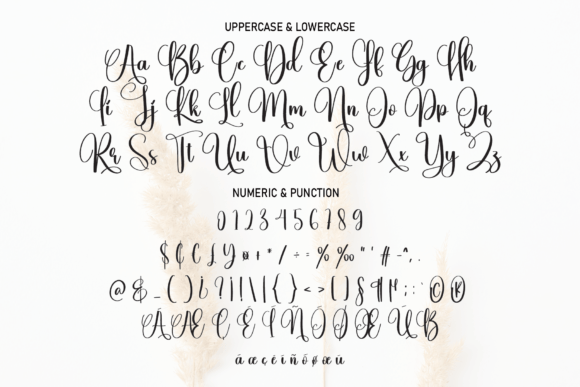 UPPERCASE & LOWERCASE
Aa Bb Cc Dd Ee Ff Gg Hh
Ii Jj Kk Ll Mm Nn Oo Pp Qq
Rr Ss Tt Uu Vv Ww Xx Yy Zz
NUMERIC & PUNCTION
0 1 2 3 4 5 6 7 8 9
$ ¢ € £ ¥ ¤ + * / ÷ = % ‰ " ' # - ^ , .
@ & _ ( ) ¿ ? ¡ ! \ | { } < > [ ] § ¶ ; : © ®